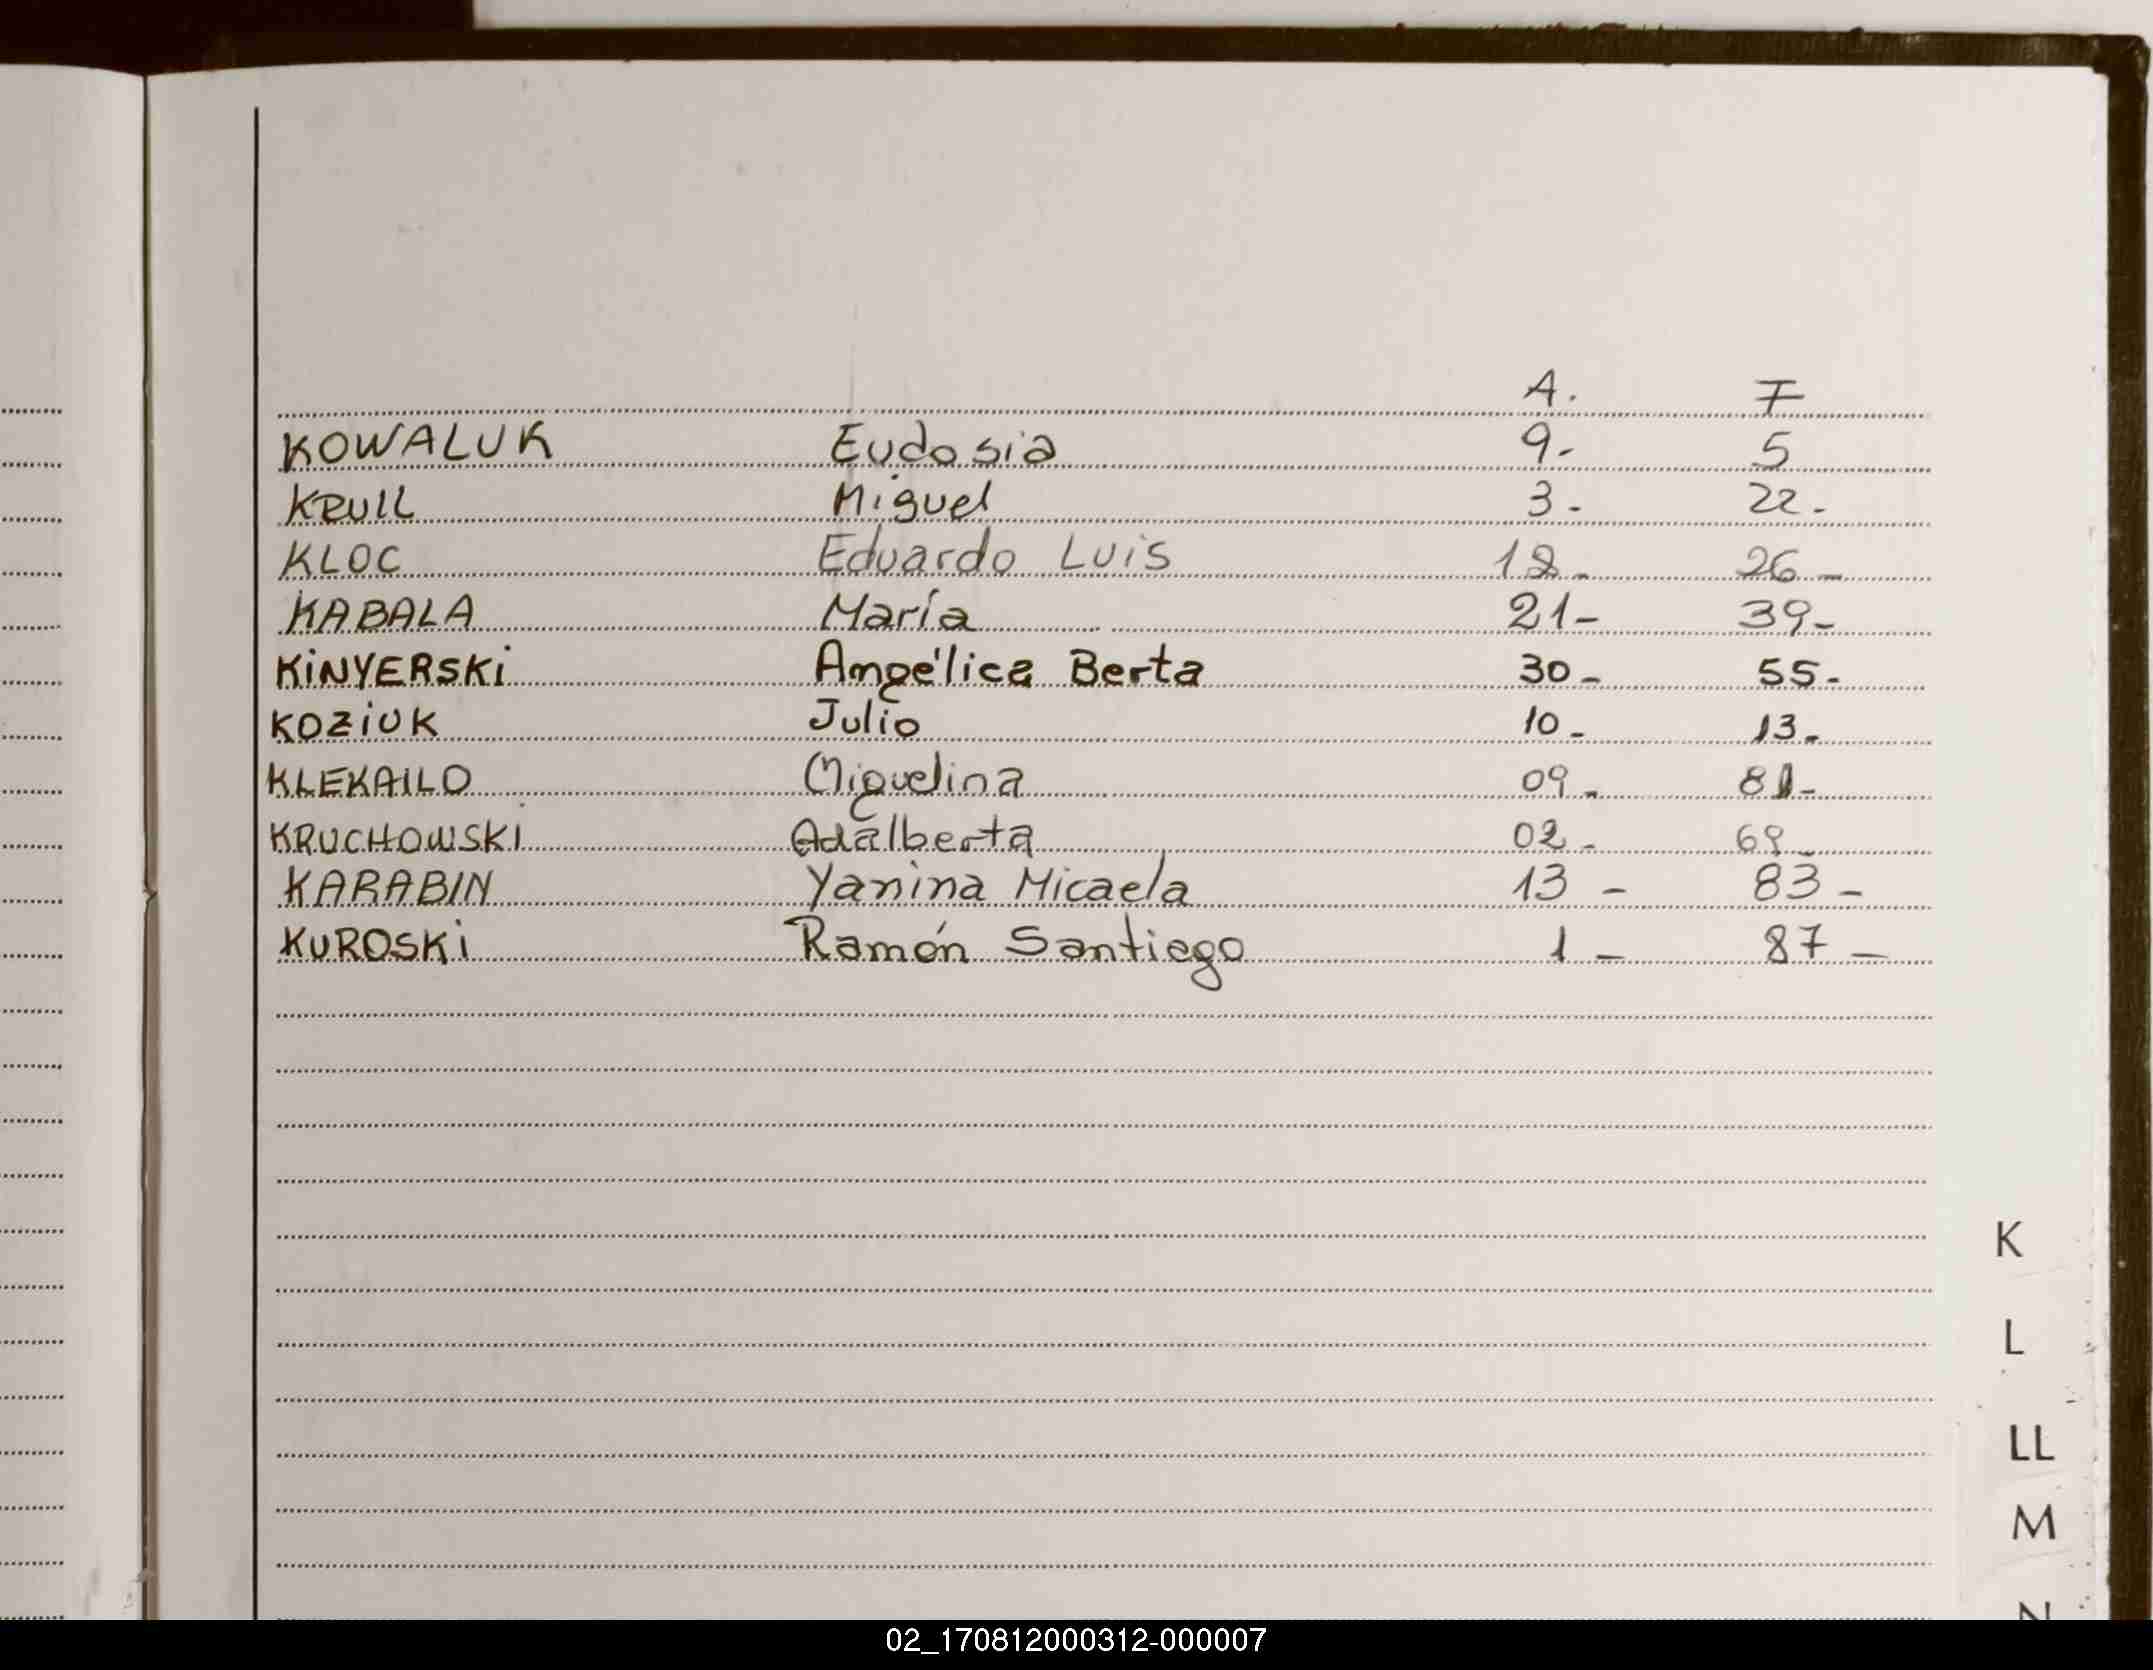 A. F
KOWALUK Eudosia 9- 5
KRULL Miguel 3- 22-
KLOC Eduardo Luis 18- 26-
KABALA María 21- 39-
KiNYERSKi Angélica Berta 30- 55-
KOZiUK Julio 10- 13-
KLEKAILO Miguelina 09- 81-
KRUCHOWSKI Adalberta 02- 69-
KARABIN Yanina Micaela 13- 83-
KUROSKi Ramón Santiego 1- 87-
K
L
LL
M
N
02_170812000312-000007